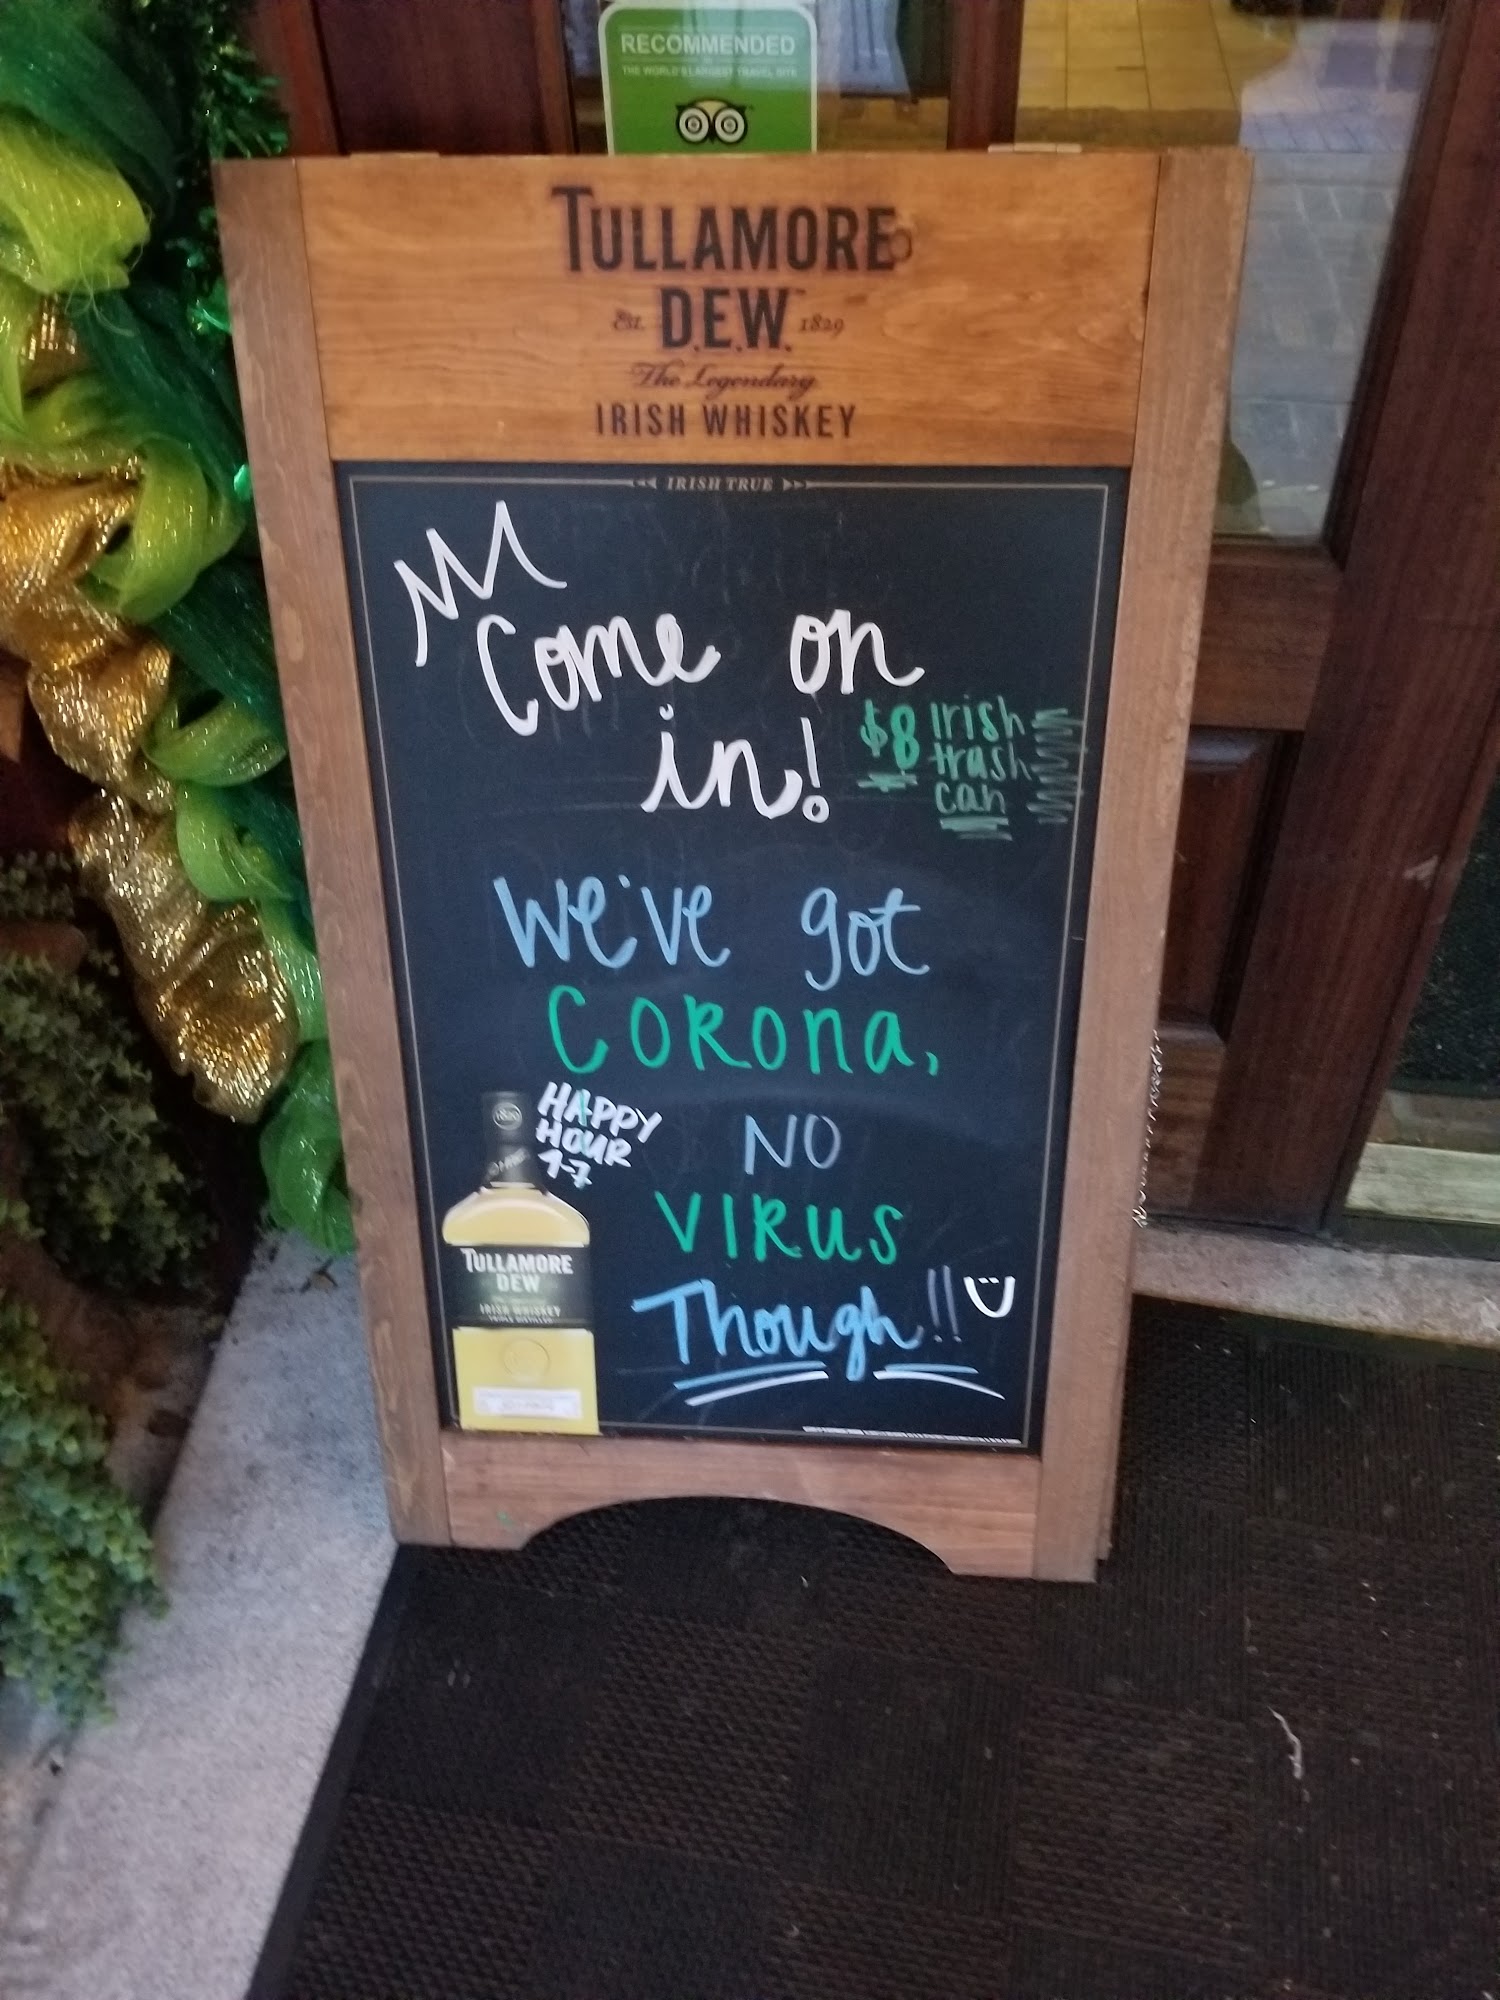 RECOMMENDED
THE WORLD'S LARGEST TRAVEL SITE
TULLAMORE
EST. D.E.W. 1829
The Legendary
IRISH WHISKEY
IRISH TRUE
Come on
in!
$8 Irish
trash
can
We've got
CORONA,
NO
VIRUS
Though!!
HAPPY
HOUR
4-7
1829
TULLAMORE
DEW
IRISH WHISKEY
TRIPLE DISTILLED